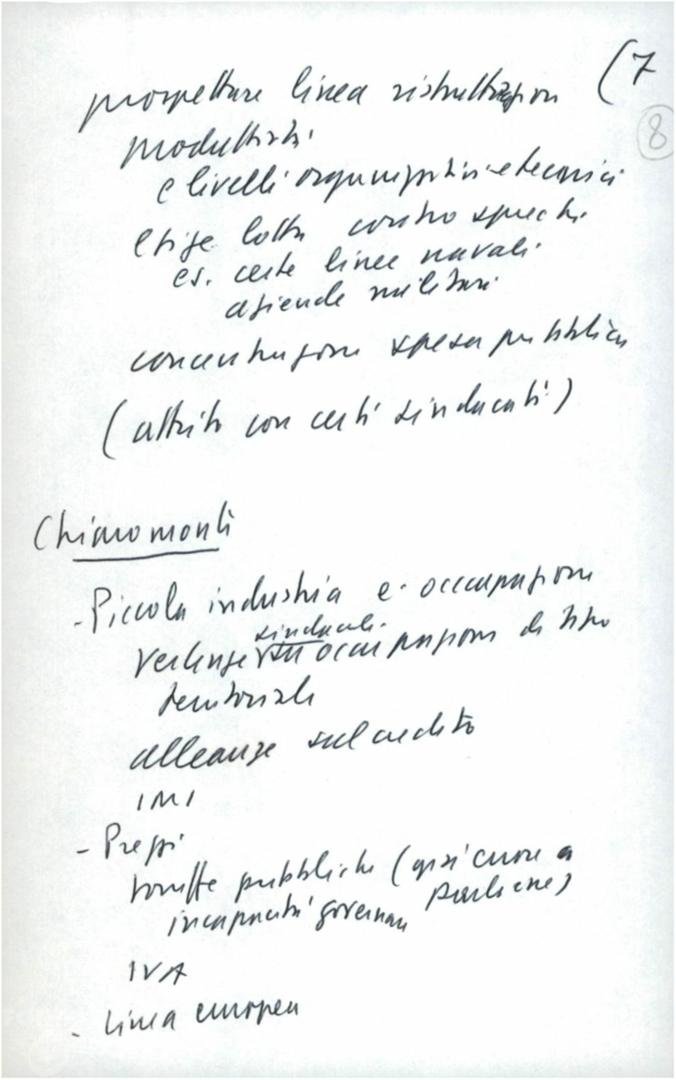 (7
8
prospettare linea ristrutturazion
produttivi
e livelli organizzativi e tecnici
esige lotta contro sprechi
es. certe linee navali
aziende militari
concentrazione spesa pubblica
(attrito con certi sindacati)
Chiaromonti
- Piccola industria e occupazione
sindacali
Vertenze su occupazione di tipo
territoriale
alleanze sul credito
IMI
- Prezzi
tariffe pubbliche (
incapacità governare
IVA
- Linea europea